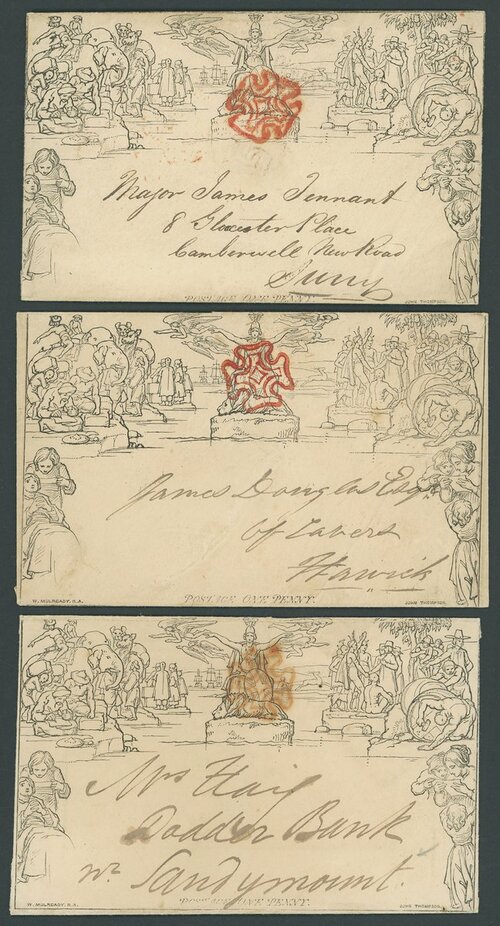 Major James Tennant
8 Glocester Place
Camberwell New Road
Surry
POSTAGE ONE PENNY.
JOHN THOMPSON.
James Douglas Esqr
of Cavers
Hawick
W. MULREADY, R.A.
POSTAGE ONE PENNY.
JOHN THOMPSON.
Mrs Haig
Dodder Bank
nr Sandymount.
W. MULREADY, R.A.
POSTAGE ONE PENNY.
JOHN THOMPSON.